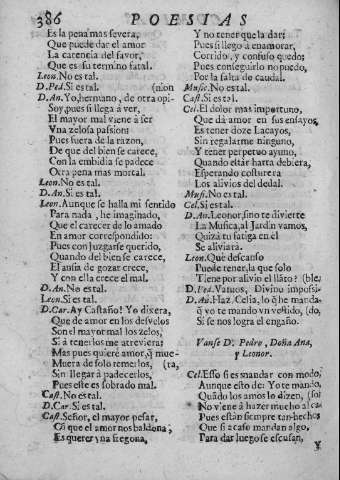 386 POESIAS
Es la pena mas severa,
Que puede dar el amor
La carencia del favor,
Que es su termino fatal.
Leon. No es tal.
D. Ped. Si es tal. (nion
D. An. Yo, hermano, de otra opi-
Soy, pues si llega à ver,
El mayor mal viene à ser
Vna zelosa passion:
Pues fuera de la razon,
De que del bien se carece,
Con la embidia se padece
Otra pena mas mortal.
Leon. No es tal.
D. An. Si es tal.
Leon. Aunque se halla mi sentido
Para nada, he imaginado,
Que el carecer de lo amado
En amor correspondido:
Pues con juzgarse querido,
Quando del bien se carece,
El ansia de gozar crece,
Y con ella crece el mal.
D. An. No es tal.
Leon. Si es tal.
D. Car. Ay Castaño! Yo dixera,
Que de amor en los desvelos
Son el mayor mal los zelos,
Si à tenerlos me atreviera:
Mas pues quiere amor, q̃ mue-
Muera de solo temerlos, (ra,
Sin llegar à padecerlos,
Pues este es sobrado mal.
Cast. No es tal.
D. Car. Si es tal.
Cast. Señor, el mayor pesar,
Cõ que el amor nos baldona,
Es querer vna fregona,
Y no tener que la dar;
Pues si llego à enamorar,
Corrido, y confuso quedo;
Pues conseguirlo no puedo,
Por la falta de caudal.
Music. No es tal.
Cast. Si es tal.
Cel. El dolor mas importuno,
Que dà amor en sus ensayos,
Es tener doze Lacayos,
Sin regalarme ninguno,
Y tener perpetuo ayuno,
Quando estàr harta debiera,
Esperando costurera
Los alivios del dedal.
Music. No es tal.
Cel. Si es tal.
D. An. Leonor, sino te divierte
La Musica, al Jardin vamos,
Quizà tu fatiga en èl
Se aliviarà.
Leon. Què descanso
Puede tener, la que solo
Tiene por alivio el llãto? (ble.
D. Ped. Vamos, Divino impossi-
D. An. Haz, Celia, lo q̃ he manda-
q̃ yo te mando vn vestido, (do,
Si se nos logra el engaño.
Vanse D. Pedro, Doña Ana,
y Leonor.
Cel. Esso si es mandar con modo,
Aunque esto de: Yo te mando,
Quãdo los amos lo dizen, (so
No viene à hazer mucho al ca-
Pues estàn siempre tan hechos
Que si acaso mandan algo,
Para dar luego se escusan,
Y